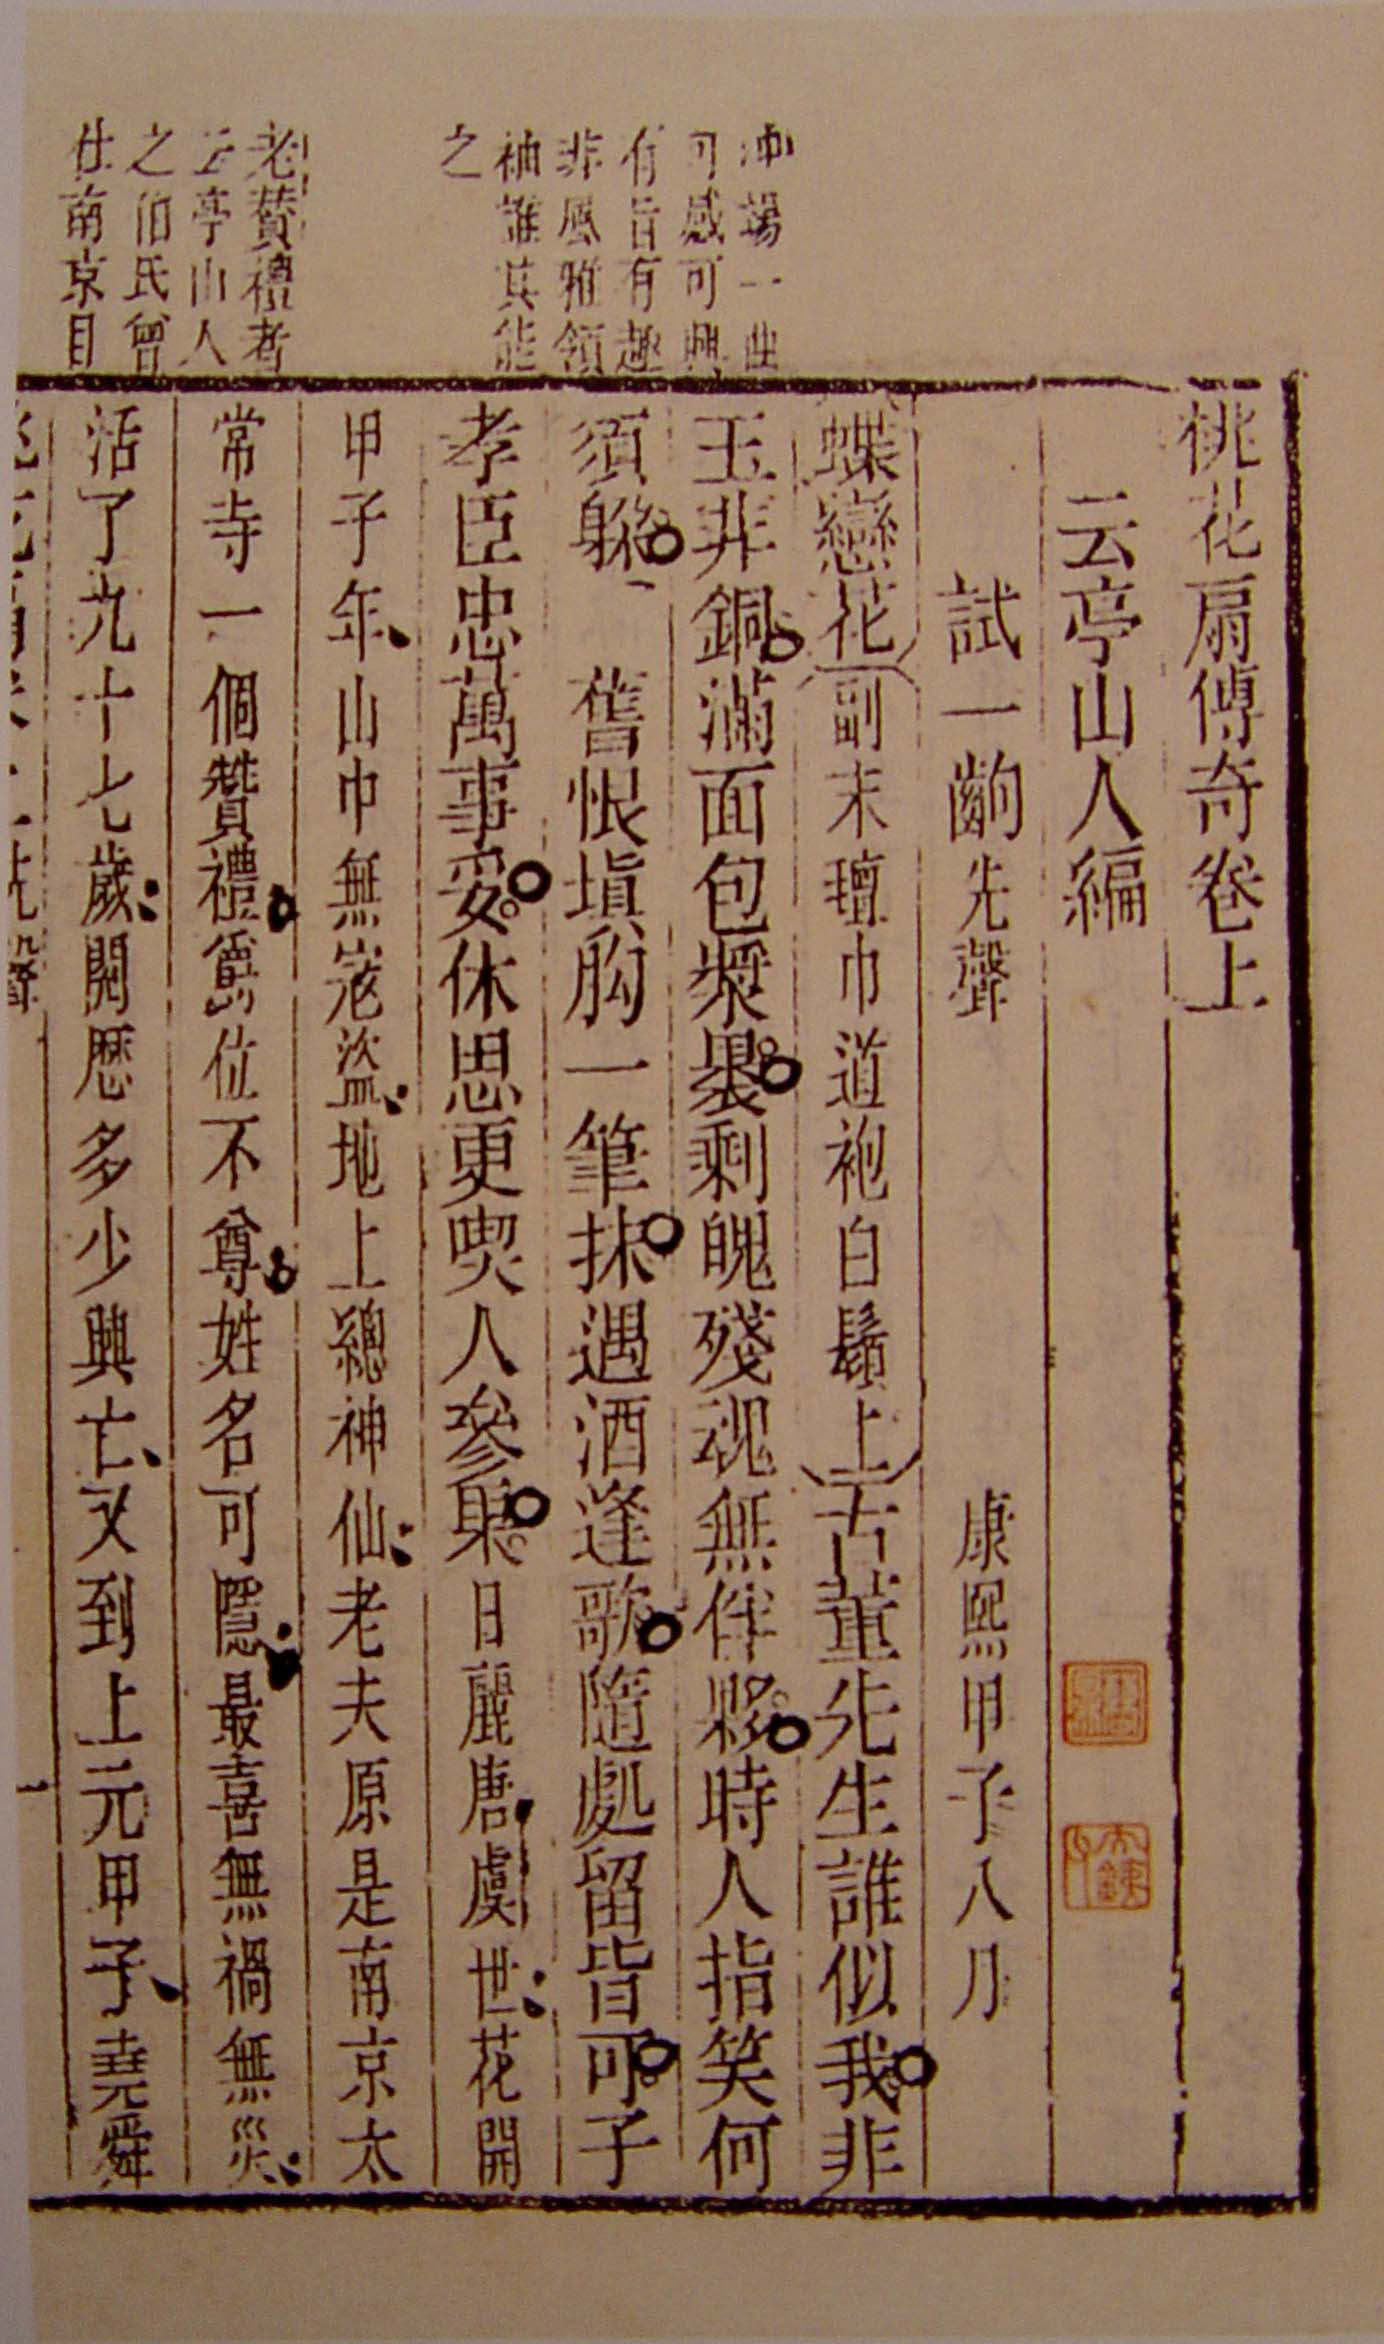 桃花扇傳奇卷上
云亭山人編
試一齣先聲 康熙甲子八月
蝶戀花副末氊巾道袍白鬚上古董先生誰似我非
玉非銅滿面包漿裹剩魄殘魂無伴夥時人指笑何
須躲 舊恨塡胸一筆抹遇酒逢歌隨處留皆可子
孝臣忠萬事妥休思更喫人參果日麗唐虞世花開
甲子年山中無寇盜地上總神仙老夫原是南京太
常寺一個贊禮爵位不尊姓名可隱最喜無禍無災
活了九十七歲閱歷多少興亡又到上元甲子堯舜
沖場一曲
可感可興
有旨有趣
非風雅領
袖誰其能
之
老贊禮者
云亭山人
之伯氏曾
仕南京目